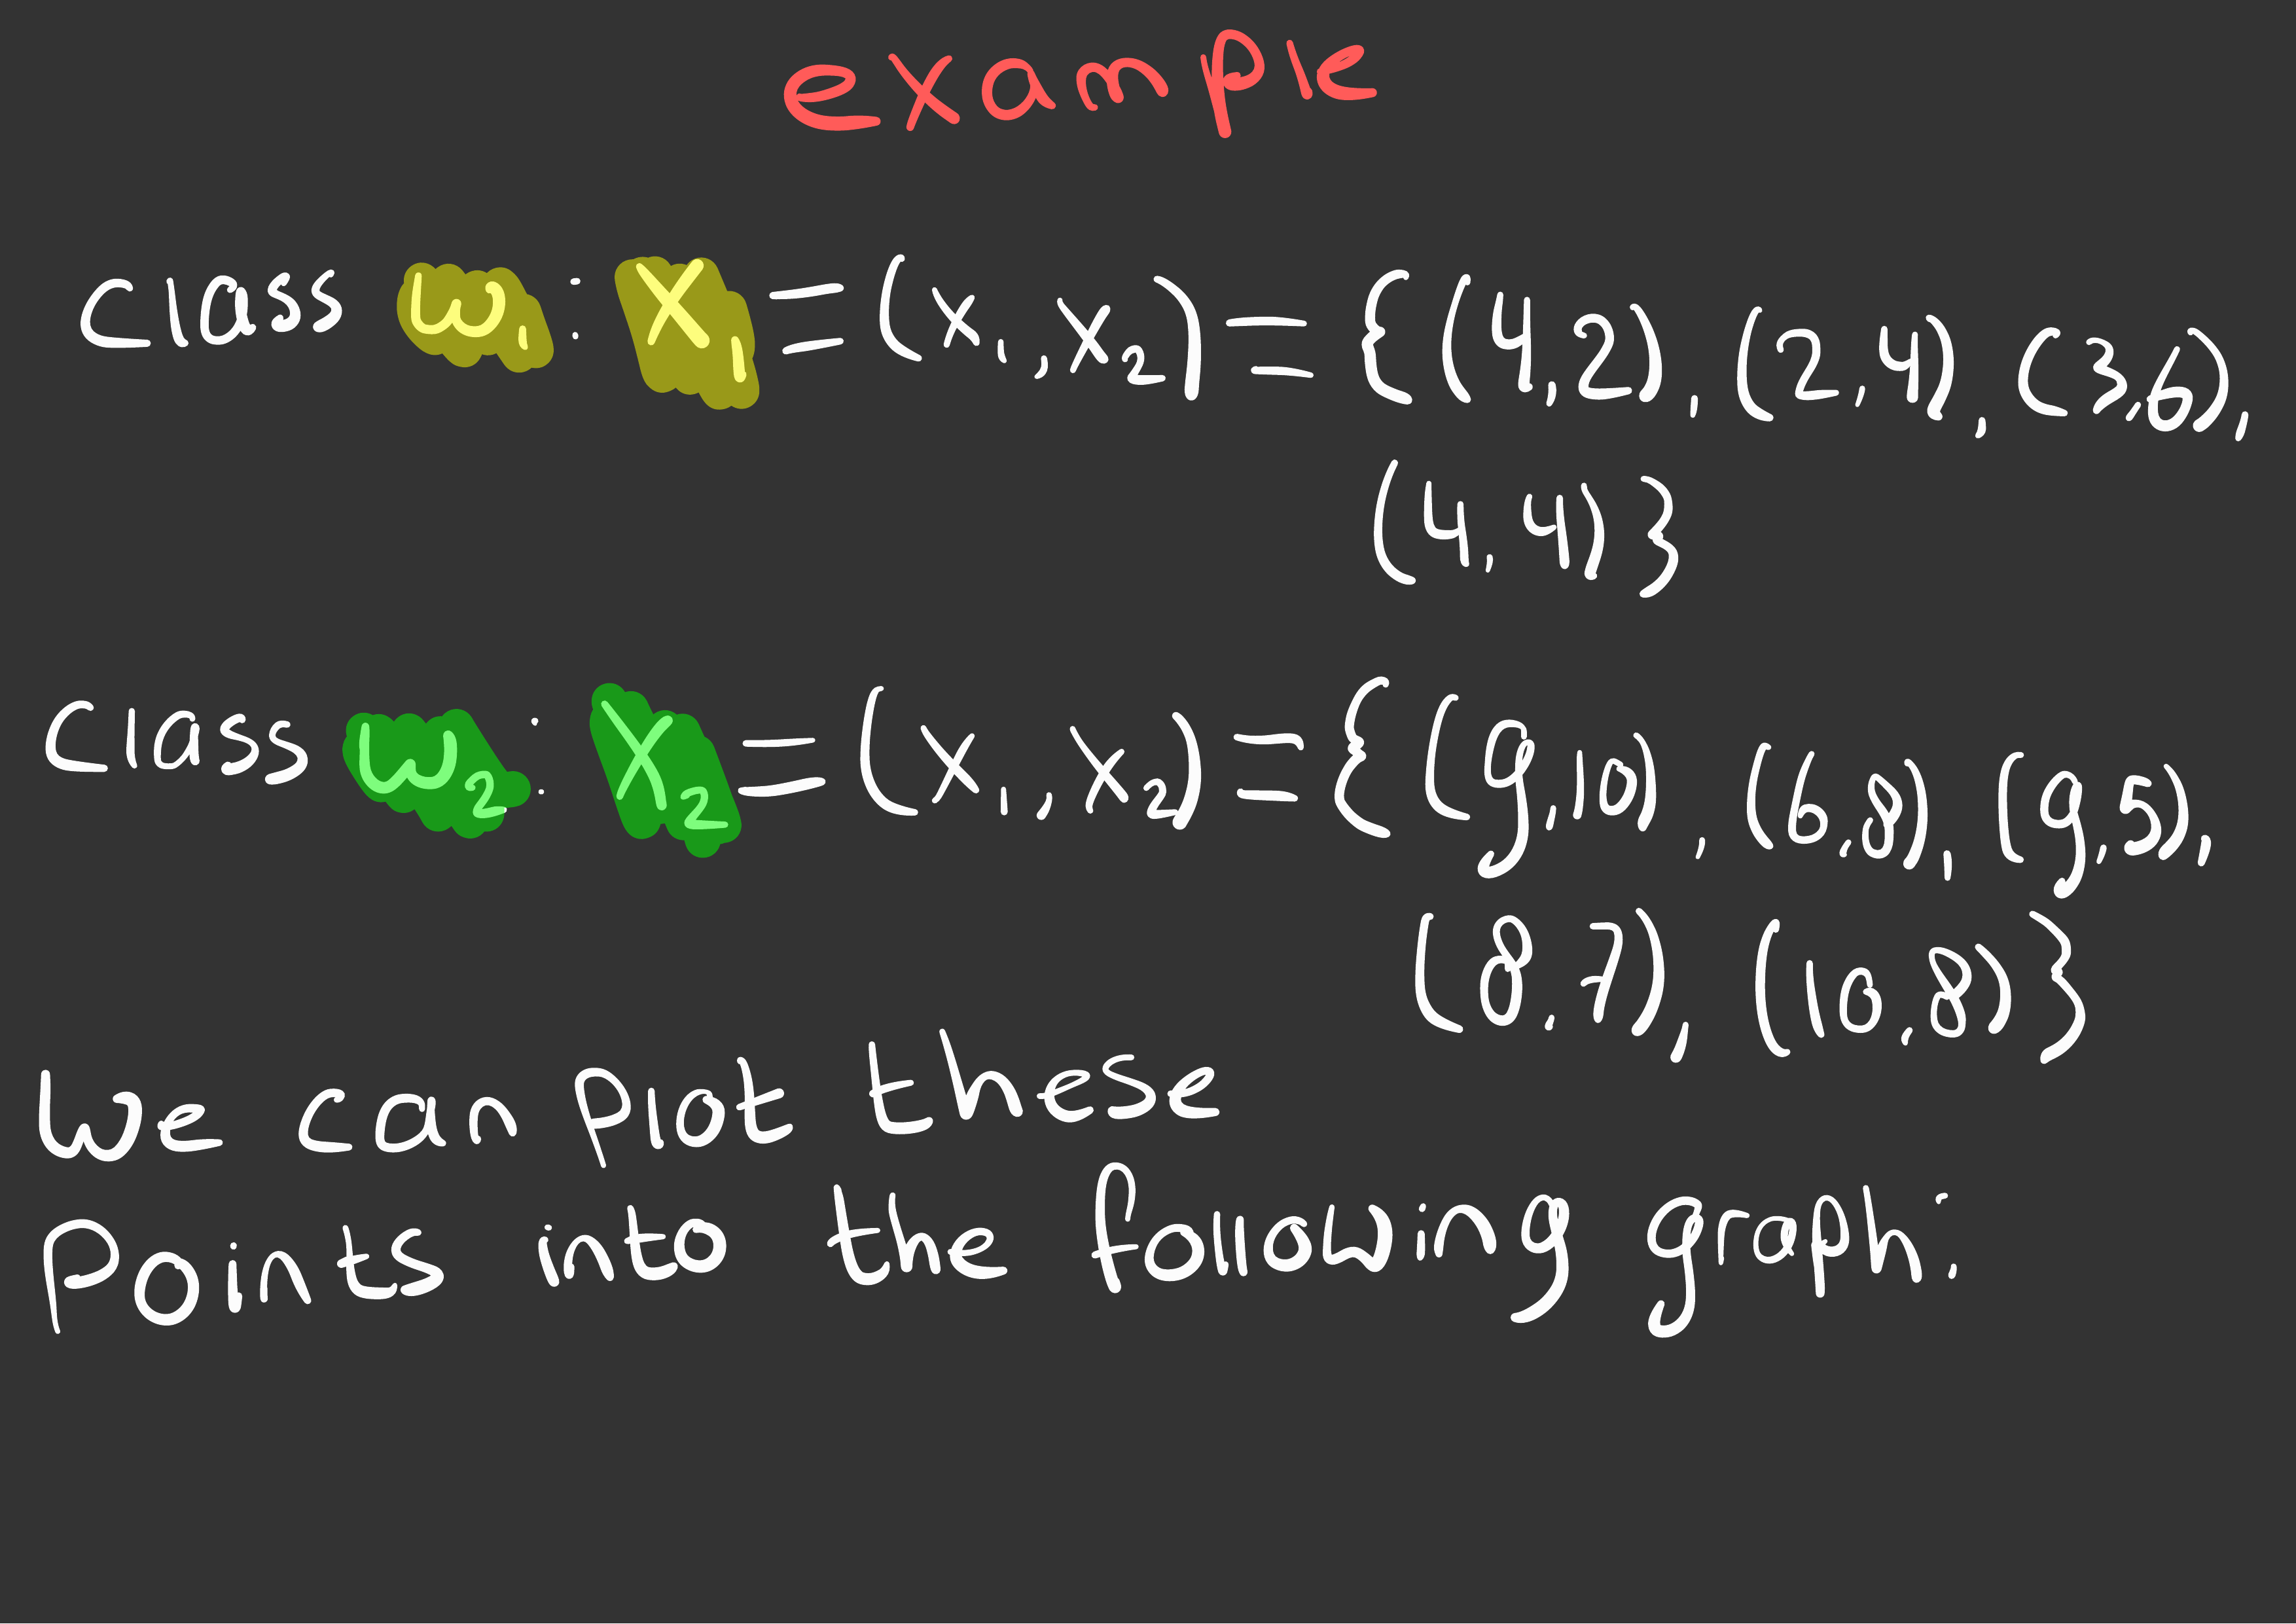 example
class ω₁: X₁ = (x₁, x₂) = {(4,2), (2,4), (3,6),
(4,4)}
class ω₂: X₂ = (x₁, x₂) = {(9,10), (6,8), (9,5),
(8,7), (10,8)}
we can plot these
points into the following graph: